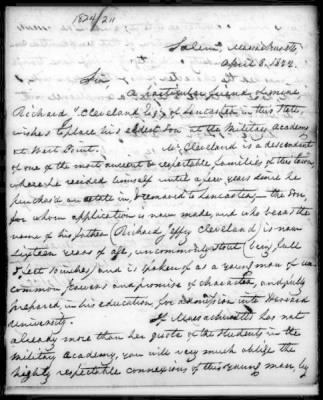 1824/211
Salem, Massachusetts,
April 8. 1822.
Sir,
A particular friend of mine,
Richard J. Cleveland Esqr. of Lancaster in this State,
wishes to place his eldest Son at the Military Academy
at West Point. Mr. Cleveland is a descendant
of one of the most ancient & respectable families of this town
where he resided himself until a few years since he
purchas'd an estate in, & removed to Lancaster — the Son,
for whom application is now made, and who bears the
name of his father (Richard Jeffry Cleveland) is now
sixteen years of age, uncommonly stout (being full
5 feet 8 inches) and is spoken of as a young man of un-
common powers and promise of character, and fully
prepared in his education for admission into Harvard
University. If Massachusetts has not
already more than her quota of the Students in the
Military Academy, you will very much oblige the
highly respectable connexions of this young man, by